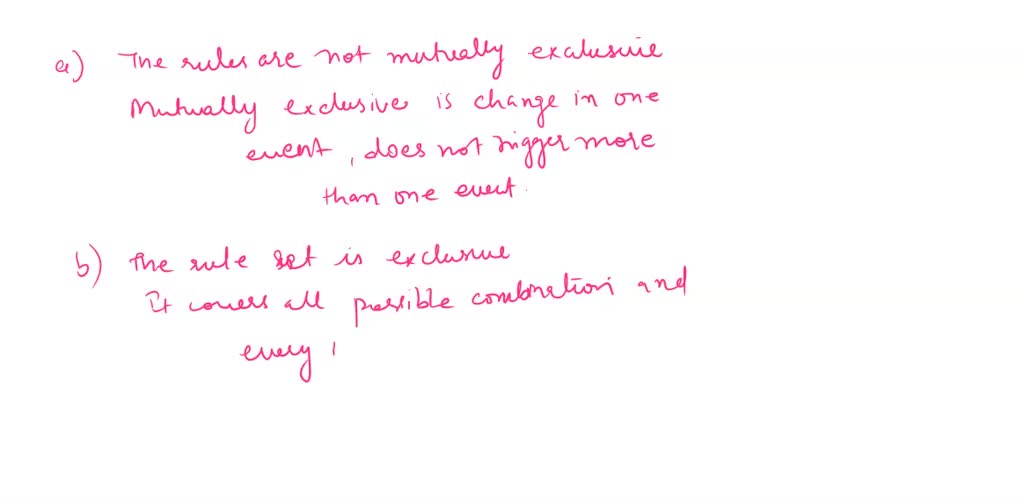 a) The rules are not mutually exclusive
Mutually exclusive is change in one
event, does not trigger more
than one event.
b) The rule set is exclusive
It covers all possible combination and
every